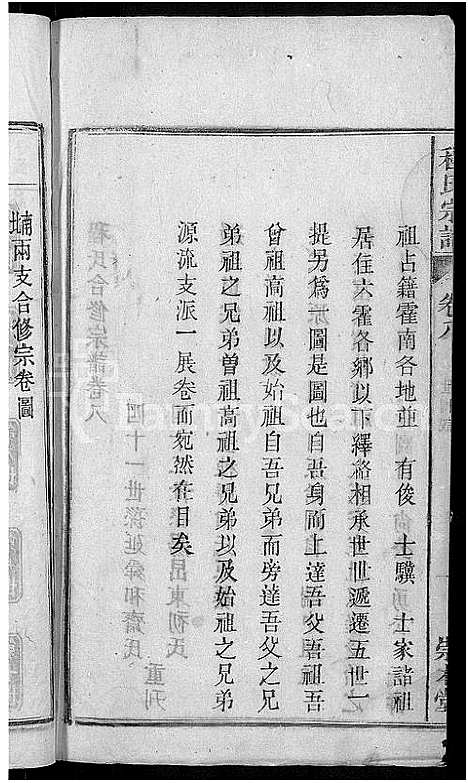 程氏宗譜
卷八
崇本堂
祖占籍霍南各地並 有俊 士驥 士家諸祖
居住六霍各鄉以下繹絡相承世世遞遷五世一
提另為一圖是圖也自吾身而上達吾父吾祖吾
曾祖高祖以及始祖自吾兄弟而旁達吾父之兄
弟祖之兄弟曾祖高祖之兄弟以及始祖之兄弟
源流支派一展卷而宛然在目矣
程氏合修宗譜卷八
四十一世孫延舜和齋氏
昆東初氏
重刊
埔兩支合修宗卷圖